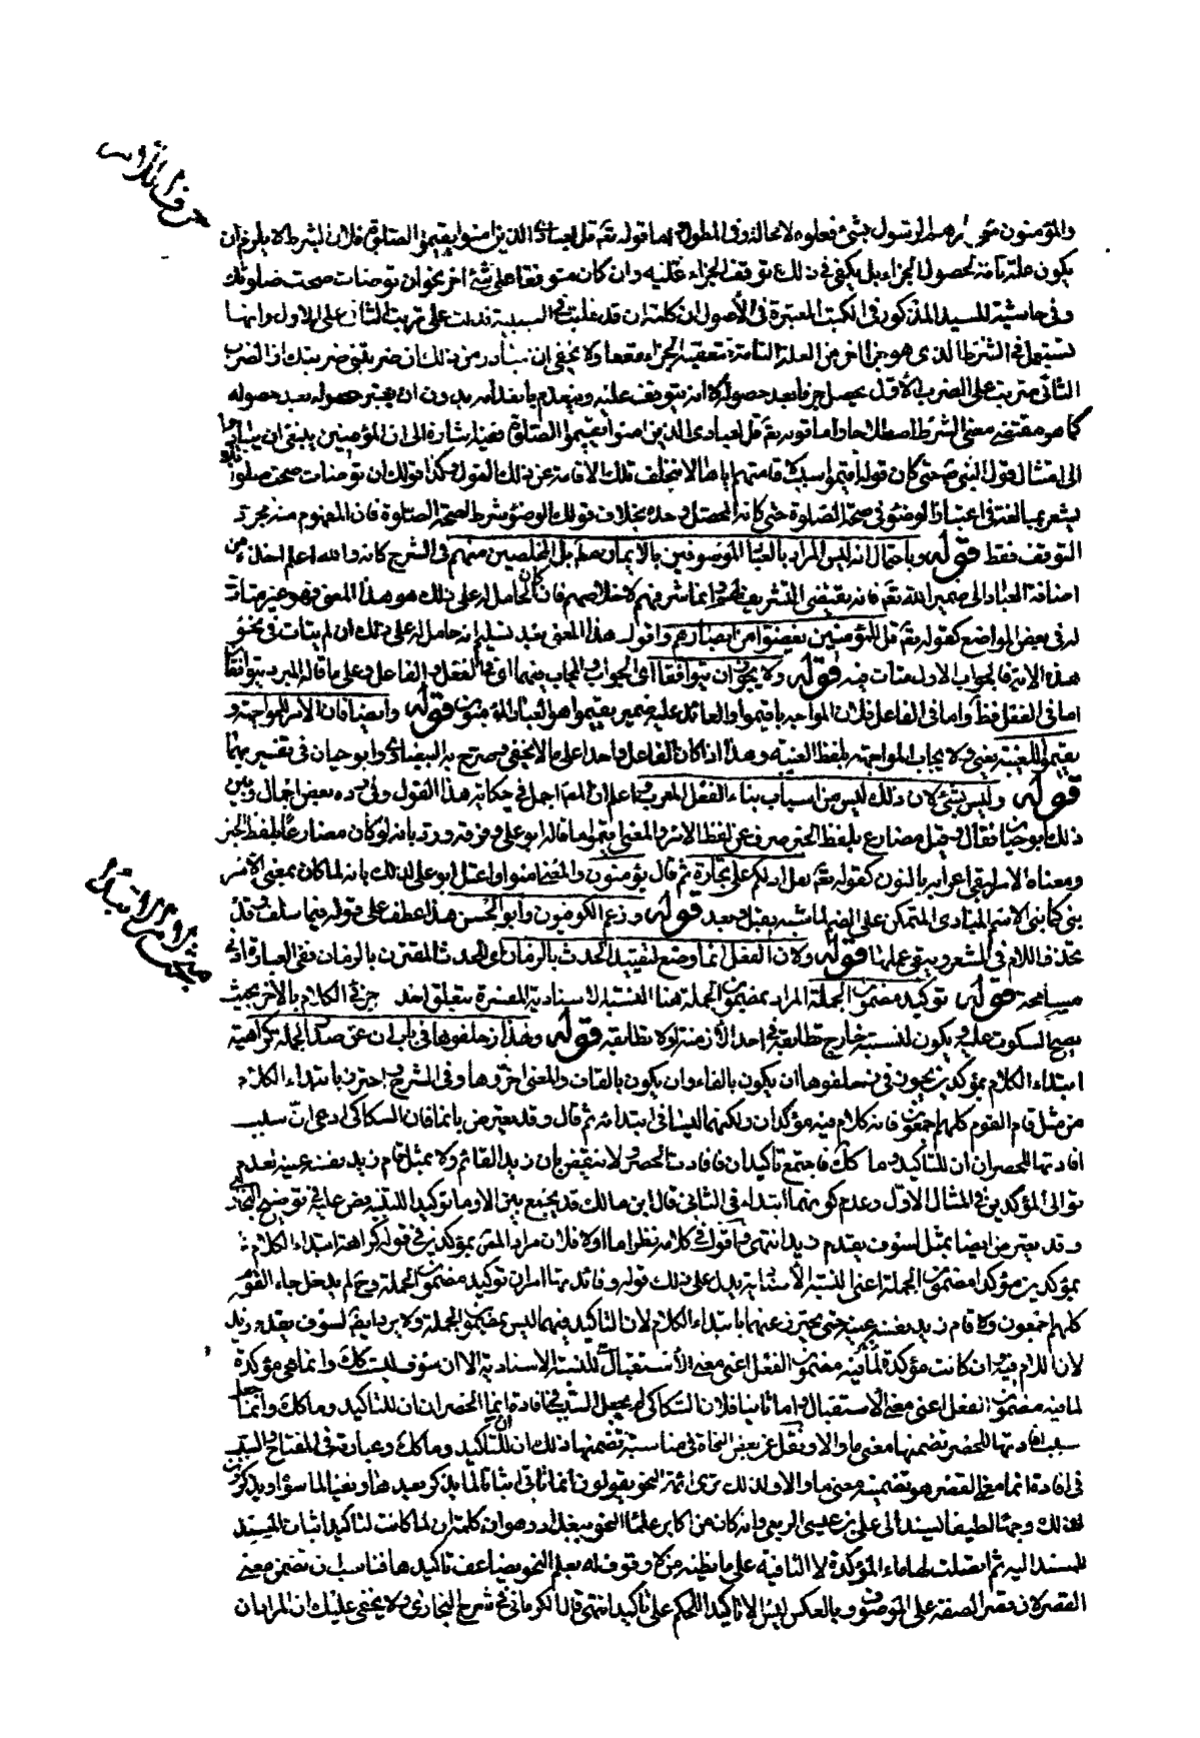 حرف اللام
والمؤمنون متى امرهم الرسول بشئ فعلوه لا محالة وفي المطول اما قوله تعالى قل لعبادي الذين امنوا يقيموا الصلوة فلان الشرط لا يلزم ان
يكون علة تامة لحصول الجزاء بل يكفي في ذلك توقف الجزاء عليه وان كان متوقفا على شئ اخر نحو ان توضات صحت صلوتك
وفي حاشيته للسيد المذكور في الكتب المعتبرة في الأصول ان كلمة ان قد غلبت في السببية فدلت على ترتب الثاني على الاول وانها
تستعمل في الشرط الذي هو جزء اخر من العلة التامة فتعقبه الجزاء معها ولا يخفى ان يتبادر من ذلك ان ضربتني ضربتك ان الضرب
الثاني مترتب على الضرب الأول يحصل جزما بعد حصوله لا انه يتوقف عليه وينعدم بانعدامه بدون ان يعتبر حصوله بعد حصوله
كما هو مقتضى معنى الشرط اصطلاحا واما قوله تعالى قل لعبادي الذين امنوا يقيموا الصلوة ففيه اشارة الى ان المؤمنين ينبغي ان يتبادروا
الى امتثال قول النبي حتى كان قوله اقيموا سبب لاقامتهم اياها لا يتخلف تلك الاقامة عن ذلك القول وكذا قولك ان توضات صحت صلوتك
يشعر بمبالغة في اعتبار الوضوء في صحة الصلوة حتى كانه المحصل وحده بخلاف قولك الوضوء شرط لصحة الصلوة فان المفهوم منه مجرد
التوقف فقط قوله وباحتمال انه ليس المراد بالعباد الموصوفين بالايمان مطلقا بل المخلصين منهم في الشرح كانه والله اعلم اخذه من
اضافة العباد الى ضمير الله تعالى فانه يقتضي التشريف وانما شرفهم لاخلاصهم فان كان الحامل له على ذلك هو هذا المعنى فهو غير متات
له في بعض المواضع كقوله تعالى قل للمؤمنين يغضوا من ابصارهم واقول هذا المعنى بعد تسليم انه حامل له على ذلك ان لم يتات في نحو
هذه الاية فالجواب الاول متات فيه قوله ولا يجوز ان يتوافقا اي الجواب والمجاب فيهما اي في الفعل والفاعل وعلى ما قاله المبرد يتوافقا
اما في الفعل فظ واما في الفاعل فلان المواجه باقيموا والعائد عليه ضمير يقيموا هو العباد المؤمنون قوله وايضا فان الأمر للمواجهة و
يقيموا للغيبة يعني لا يجاب المواجهة بلفظ الغيبة وهذا اذا كان الفاعل واحدا على ما لا يخفى وصرح به البيضاوي وابو حيان في تفسيريهما
قوله وليس بشئ لان ذلك ليس من اسباب بناء الفعل المعرب واعلم ان المص اجمل في حكاية هذا القول وفي رده بعض اجمال وبين
ذلك ابو حيان فقال وقيل مضارع بلفظ الخبر صرف عن لفظ الامر والمعنى اقيموا قاله ابو علي وفرقة ورد بانه لو كان مضارعا بلفظ الخبر
ومعناه الامر لبقي اعرابه بالنون كقوله تعالى هل ادلكم على تجارة ثم قال تؤمنون والمعنى امنوا واعتل ابو علي لذلك بانه لما كان بمعنى الأمر
بنى كما بنى الاسم المنادى المتمكن على الضم لما شبه بقبل وبعد قوله وزعم الكوفيون وابو الحسن هذا عطف على قوله فيما سلف وقد
تحذف اللام في الشعر ويبقى عملها قوله ولان الفعل انما وضع لتقييد الحدث بالزمان اي الحدث المقترن بالزمان ففي العبارة
مسامحة قوله توكيد مضمون الجملة المراد بمضمون الجملة هنا النسبة الاسنادية المفسرة بتعلق احد جزئي الكلام بالأخر بحيث
يصح السكوت عليه ويكون للنسبة خارج تطابقه في احد الأزمنة او لا تطابقه قوله ولهذا زحلفوها في باب ان عن صدر الجملة كراهية
ابتداء الكلام بمؤكدين يجوز في زحلفوها ان يكون بالفاء وان يكون بالقاف والمعنى اخروها وفي الشرح احترز بابتداء الكلام
من مثل قام القوم كلهم اجمعون فانه كلام فيه مؤكدان ولكنهما ليسا في ابتدائه ثم قال وقد يعترض بانما فان السكاكي ادعى ان سبب
افادتها للحصر ان ان للتاكيد وما كذلك فاجتمع تاكيدان فافادت الحصر ولا ينتقض بان زيد القائم ولا بمثل قام زيد نفسه عينه لعدم
توالي المؤكدين في المثال الاول وعدم كونهما ابتداء في الثاني قال ابن مالك قد يجتمع بين الا وما توكيدا للتنبيه نص عليه في توضيح البخاري
وقد يعترض ايضا بمثل لسوف يقدم زيد انتهى واقول في كلامه نظر اما اولا فلان مراد المص بمؤكدين في قوله كراهة ابتداء الكلام
بمؤكدين مؤكدا مضمون الجملة اعني النسبة الأسنادية يدل على ذلك قوله وفائدتها امران توكيد مضمون الجملة وح لم يدخل جاء القوم
كلهم اجمعون ولا قام زيد نفسه عينه حتى يحترز عنهما بابتداء الكلام لان التاكيد فيهما ليس بمضمون الجملة ولا يرد ايضا لسوف يقدم زيد
لان اللام فيه ان كانت مؤكدة لما فيه مضمون الفعل اعني معنى الأستقبال للنسبة الاسنادية الا ان سوف ليست كذلك وانما هي مؤكدة
لما فيه مضمون الفعل اعني معنى الأستقبال واما ثانيا فلان السكاكي لم يجعل السبب في افادة انما الحصر ان ان للتاكيد وما كذلك وانما جعل
سبب افادتها للحصر تضمنها معنى ما والا ونقل عن بعض النحاة في مناسبة تضمنها ذلك ان ان للتاكيد وما كذلك وعبارته في المفتاح والسبب
في افادة انما معنى القصر هو تضمينه معنى ما والا ولذلك ترى ائمة النحو يقولون انما تاتي اثباتا لما يذكر بعدها ونفيا لما سواه ويذكرون
لذلك وجها لطيفا يسند الى علي بن عيسى الربعي وانه كان من اكابر علماء النحو ببغداد وهو ان كلمة ان لما كانت لتاكيد اثبات المسند
للمسند اليه ثم اتصلت بها ماء المؤكدة لا النافية على ما يظنه من لا وقوف له بعلم النحو يضاعف تاكيدها فناسب ان تضمن معنى
القصر لان قصر الصفة على الموصوف وبالعكس ليس الا تاكيد الحكم على تاكيد انتهى قال الكرماني في شرح البخاري ولا يخفى عليك ان المراد ان